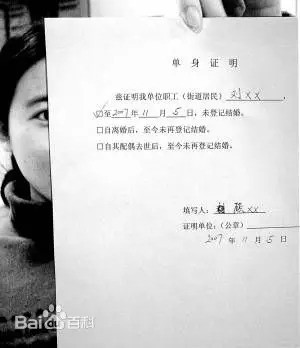 单身证明
兹证明我单位职工（街道居民） 刘××，
☑至2007年11月5日，未登记结婚。
□自离婚后，至今未再登记结婚。
□自其配偶去世后，至今未再登记结婚。
填写人： ××
证明单位：（公章）
2007年11月5日
Bai百科